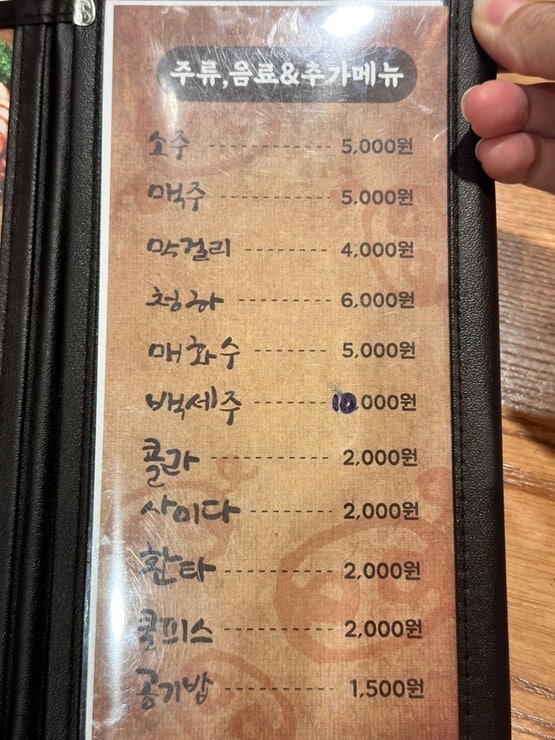 주류,음료&추가메뉴
소주 ---------------- 5,000원
맥주 ---------------- 5,000원
막걸리 ------------ 4,000원
청하 -------------- 6,000원
매화수 ---------- 5,000원
백세주 ---------- 10,000원
콜라 -------------- 2,000원
사이다 ---------- 2,000원
환타 -------------- 2,000원
쿨피스 ------------ 2,000원
공기밥 ------------ 1,500원